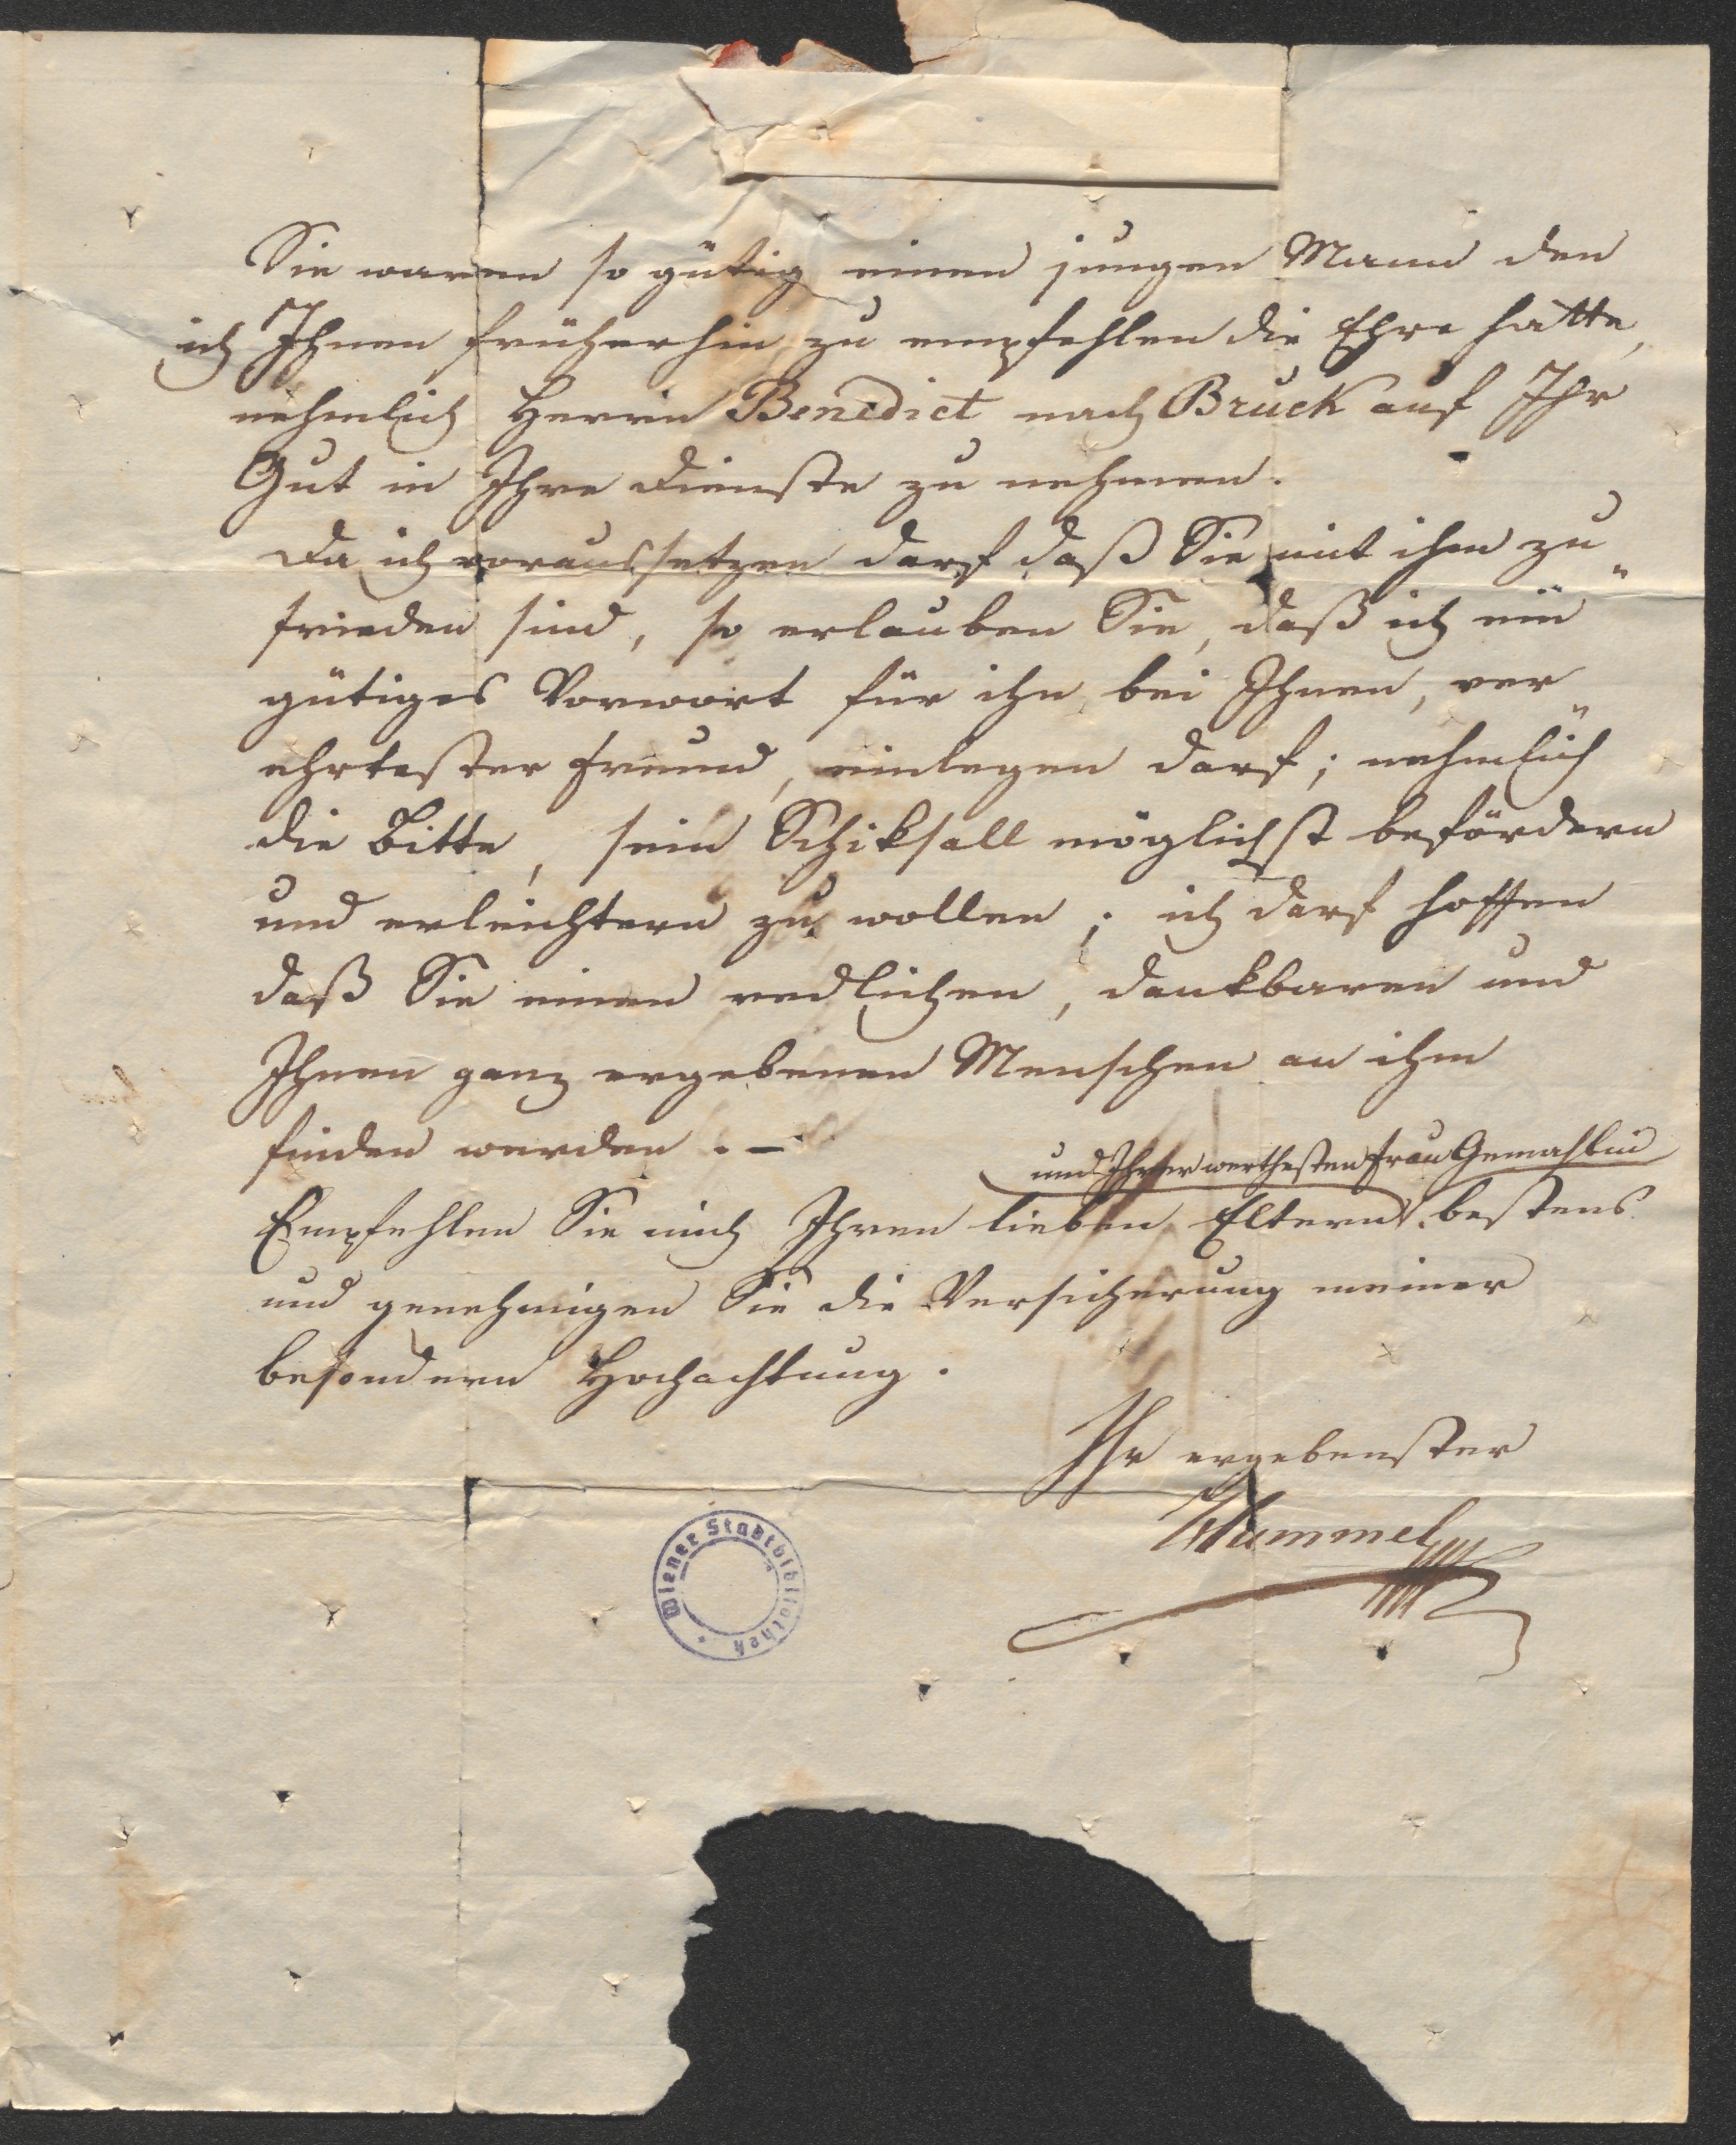 Sie waren so gütig einen jungen Mann den
ich Ihnen früherhin zu empfehlen die Ehre hatte,
nehmlich Herrn Benedict nach Bruck auf Ihr
Gut in Ihre Dienste zu nehmen.
Da ich voraussetzen darf daß Sie mit ihm zu"
frieden sind, so erlauben Sie, daß ich ein
gütiges Vorwort für ihn bei Ihnen, ver"
ehrtester Freund, einlegen darf; nehmlich
die Bitte, sein Schiksall möglichst befördern
und erleichtern zu wollen; ich darf hoffen
daß Sie einen redlichen, dankbaren und
Ihnen ganz ergebenen Menschen an ihm
finden werden. –
und Ihrer werthesten Frau Gemahlin
Empfehlen Sie mich Ihren lieben Eltern bestens
und genehmigen Sie die Versicherung meiner
besondern Hochachtung.
Ihr ergebenster
Hummel
Wiener Stadtbibliothek